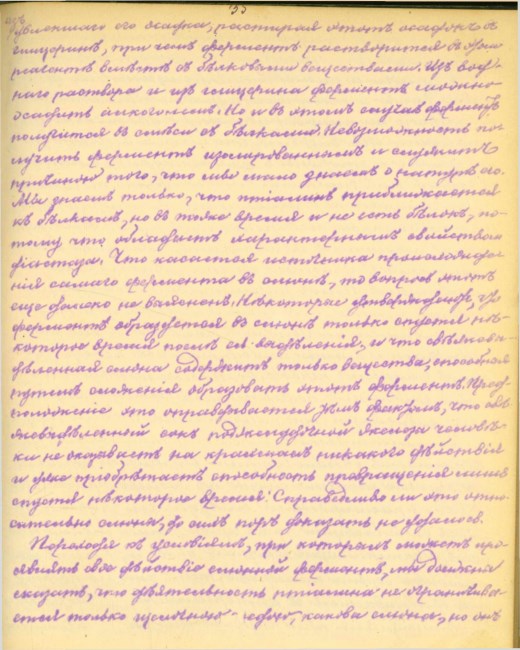 33
увлекшаго его осадка, растирая этотъ осадокъ въ
глицеринѣ, при чемъ ферментъ растворится въ
вмѣстѣ съ бѣлковыми веществами. Изъ вод-
наго раствора и изъ глицерина ферментъ можно
осадить алкоголемъ. Но и въ этомъ случаѣ ферментъ
получится въ смѣси съ бѣлками. Невозможность по-
лучить ферментъ изолированнымъ и служитъ
причиною того, что мы мало знаемъ о натурѣ его.
Мы знаемъ только, что птіалинъ приближается
къ бѣлкамъ, но въ тоже время и не есть бѣлокъ, по-
тому что обладаетъ характернымъ свойствомъ
діастаза. Что касается источника происхожде-
нія самаго фермента въ слюнѣ, то вопросъ этотъ
еще далеко не выясненъ. Нѣкоторые утверждаютъ, что
ферментъ образуется въ слюнѣ только спустя нѣ-
которое время послѣ ея выдѣленія, и что свѣжевы-
дѣленная слюна содержитъ только вещества, способныя
путемъ сложенія образовать этотъ ферментъ. Пред-
положеніе это оправдывается тѣмъ фактомъ, что свѣ-
жевыдѣленный сокъ поджелудочной железы
не оказываетъ на крахмалъ никакого дѣйствія
и уже пріобрѣтаетъ способность превращенія лишь
спустя нѣкоторое время. Справедливо ли это отно-
сительно слюны, до сихъ поръ доказать не удалось.
Переходя къ условіямъ, при которыхъ можетъ про-
являть свое дѣйствіе слюнной ферментъ, мы должны
сказать, что дѣятельность птіалина не ограничива-
ется только щелочною средою, какова слюна, но онъ